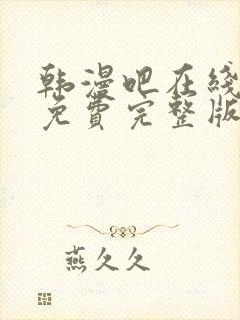 韩漫吧在线
免費完整版
燕久久